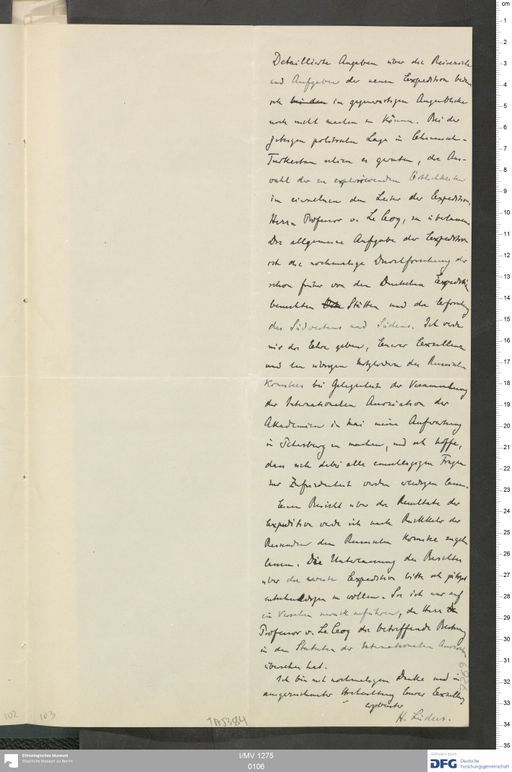 Detaillierte Angaben über die Reiseroute
und Aufgaben der neuen Expedition
ich im gegenwärtigen Augenblicke
noch nicht machen zu können. Bei der
jetzigen politischen Lage in Chinesisch-
Turkestan schien es geraten, die Aus-
wahl der zu explorierenden Örtlichkeiten
im einzelnen dem Leiter der Expedition,
Herrn Professor v. Le Coq, zu überlassen.
Die allgemeine Aufgabe der Expedition
ist die nochmalige Durchforschung der
schon früher von den Deutschen Expeditionen
besuchten Stätten und die Erforschung
des Südwestens und Südens. Ich werde
mir die Ehre geben, Euerer Exzellenz
und den übrigen Mitgliedern des Russischen
Komitees bei Gelegenheit der Versammlung
der Internationalen Assoziation der
Akademien im Mai meine Aufwartung
in Petersburg zu machen, und ich hoffe,
dass sich dabei alle Fragen
zur Zufriedenheit werden erledigen lassen.
Einen Bericht über die Resultate der
Expedition werde ich nach Rückkehr der
Reisenden dem Russischen Komitee zugehen
lassen. Die des Berichtes
über die zweite Expedition bitte ich gütigst
entschuldigen zu wollen. Sie ist nur auf
ein Versehen zurückzuführen, da Herr
Professor v. Le Coq die betreffende Bestimmung
in den Statuten der Internationalen Assoziation
übersehen hat.
Ich bin mit nochmaligem Danke und in
ausgezeichneter Hochachtung Euerer Exzellenz
ergebenster
H. Lüders.
102
103
TA 5384
I/MV 1275
0106
Ethnologisches Museum
Staatliche Museen zu Berlin
DFG Deutsche
Forschungsgemeinschaft
cm
1
2
3
4
5
6
7
8
9
10
11
12
13
14
15
16
17
18
19
20
21
22
23
24
25
26
27
28
29
30
31
32
33
34
35